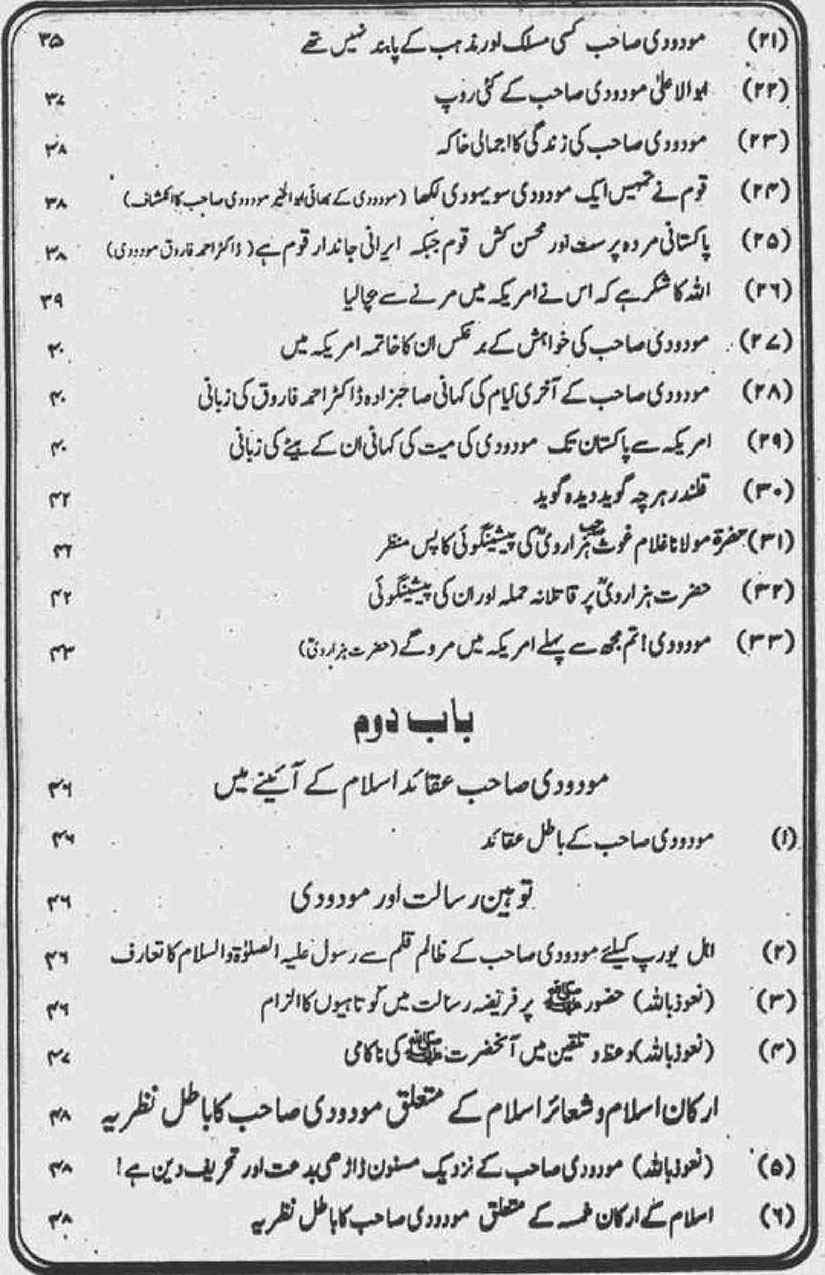 (۲۱) مودودی صاحب کسی مسلک اور مذہب کے پابند نہیں تھے ۳۵
(۲۲) ابوالاعلیٰ مودودی صاحب کے کئی روپ ۳۷
(۲۳) مودودی صاحب کی زندگی کا اجمالی خاکہ ۳۸
(۲۴) قوم نے تمہیں ایک مودودی سو یہودی لکھا (مودودی کے بھائی ابوالخیر مودودی صاحب کا انکشاف) ۳۸
(۲۵) پاکستانی مردہ پرست اور محسن کش قوم جبکہ ایرانی جاندار قوم ہے (ڈاکٹر احمد فاروق مودودی) ۳۸
(۲۶) اللہ کا شکر ہے کہ اس نے امریکہ میں مرنے سے بچالیا ۳۹
(۲۷) مودودی صاحب کی خواہش کے برعکس ان کا خاتمہ امریکہ میں ۴۰
(۲۸) مودودی صاحب کے آخری ایام کی کہانی صاحبزادہ ڈاکٹر احمد فاروق کی زبانی ۴۰
(۲۹) امریکہ سے پاکستان تک مودودی کی میت کی کہانی ان کے بیٹے کی زبانی ۴۰
(۳۰) قلندر ہرچہ گوید دیدہ گوید ۴۲
(۳۱) حضرۃ مولانا غلام غوث صاحب ہزارویؒ کی پیشینگوئی کا پس منظر ۴۲
(۳۲) حضرت ہزارویؒ پر قاتلانہ حملہ اور ان کی پیشینگوئی ۴۲
(۳۳) مودودی! تم مجھ سے پہلے امریکہ میں مرو گے (حضرت ہزارویؒ) ۴۳
باب دوم
مودودی صاحب عقائد اسلام کے آئینے میں ۴۶
(۱) مودودی صاحب کے باطل عقائد ۴۶
توہین رسالت اور مودودی ۴۶
(۲) اہل یورپ کیلئے مودودی صاحب کے ظالم قلم سے رسول علیہ الصلوٰۃ والسلام کا تعارف ۴۶
(۳) (نعوذ باللہ) حضور ﷺ پر فریضہ رسالت میں کوتاہیوں کا الزام ۴۶
(۴) (نعوذ باللہ) وعظ و تلقین میں آنحضرت ﷺ کی ناکامی ۴۷
ارکان اسلام و شعائر اسلام کے متعلق مودودی صاحب کا باطل نظریہ ۴۸
(۵) (نعوذ باللہ) مودودی صاحب کے نزدیک مسنون ڈاڑھی بدعت اور تحریف دین ہے! ۴۸
(۶) اسلام کے ارکان خمسہ کے متعلق مودودی صاحب کا باطل نظریہ ۴۸